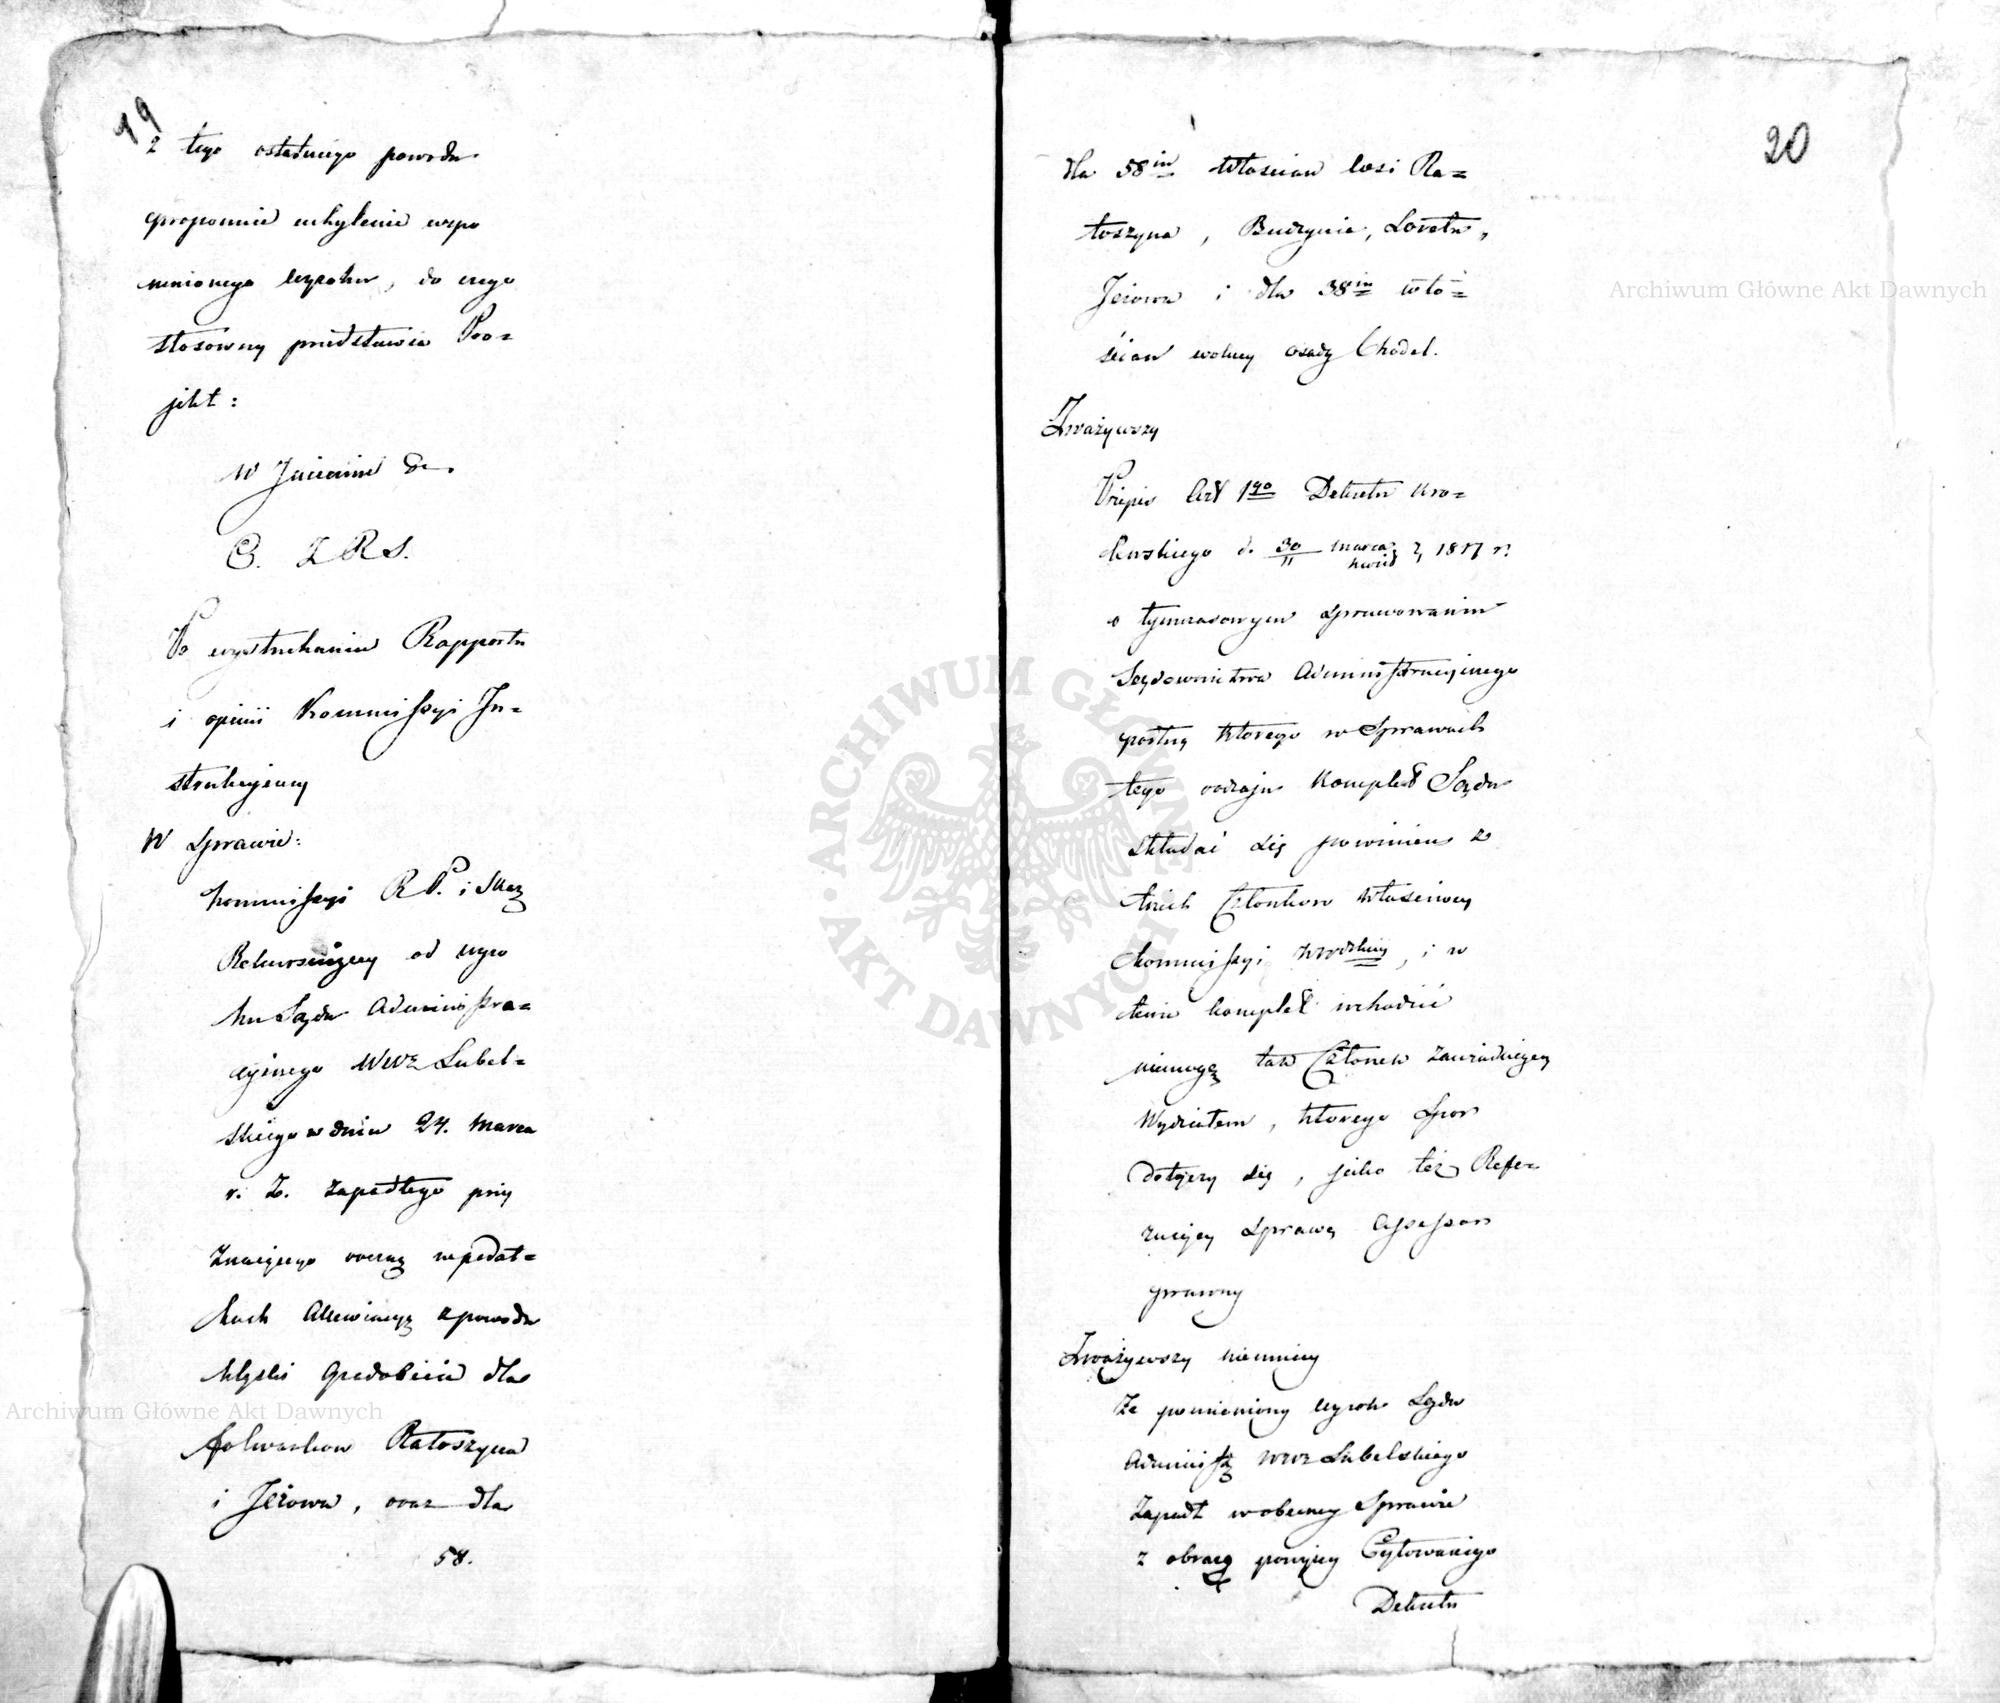 19
z tego ostatniego powodu
proponuie uchylenie wspo
mnionego wyroku, do czego
stosowny przedstawia Pro=
jekt:
W Imieniu &c.
C. Z R S.
Po wysłuchaniu Rapportu
i opinii Kommissyi In=
strukcyjney
W Sprawie:
Kommissyi R. P. i Skarz
Rekursuiącey od wyro
ku Sądu Administra=
cyjnego Wwz Lubel=
skiego w dniu 24. Marca
r. z. zapadłego przy
Znaiącego ovczą w podat=
kach Allewiacyą z powodu
klęski gradobicia dla
folwarkow Ratoszyna
i Jeżowa, oraz dla
58.
20
dla 58iu Włościan wsi Ra=
toszyna, Budzynia, Loretu,
Jeżowa i dla 38iu wło=
ścian wolney osady Chodel.
Zważywszy
Przepis Art 1go Dekretu Kro=
lewskiego d. 30/11 Marca/Kwiet 1817 r.
o tymczasowym sprawowaniu
Sądownictwa Administracyjnego
podług ktorego w Sprawach
tego rodzaju Komplet Sądu
składać się powinien z
trzech Członkow Właściwey
Kommissyi Wwdzkiey, i w
tenże komplet wchodzić
niemogą tak Członek zawiaduiący
Wydziałem, ktorego spor
dotyczy się, jako też Refe=
ruiący sprawę Assessor
prawny
Zważywszy niemniey
Że pomieniony wyrok Sądu
Administr Wwz Lubelskiego
Zapadł w obecney Sprawie
z obrazą powyżey Cytowanego
Dekretu
Archiwum Główne Akt Dawnych
Archiwum Główne Akt Dawnych
ARCHIWUM GŁÓWNE AKT DAWNYCH